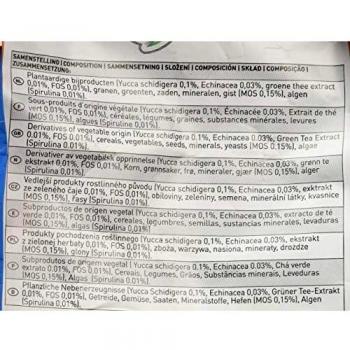 SAMENSTELLING | COMPOSITION | SAMMENSETNING | SLOŽENÍ | COMPOSICIÓN | SKŁAD | COMPOSIÇÃO |
ZUSAMMENSETZUNG:
NL Plantaardige bijproducten [Yucca schidigera 0,1%, Echinacea 0,03%, groene thee extract
0,01%, FOS 0,01%], granen, groenten, zaden, mineralen, gist [MOS 0,15%], algen
[Spirulina 0,01%].
F Sous-produits d'origine végétale [Yucca schidigera 0,1%, Échinacée 0,03%, Extrait de thé
vert 0,01%, FOS 0,01%], céréales, légumes, graines, substances minérales, levures
[MOS 0,15%], algues [Spirulina 0,01%].
GB Derivatives of vegetable origin [Yucca schidigera 0,1%, Echinacea 0,03%, Green Tea Extract
0,01%, FOS 0,01%], cereals, vegetables, seeds, minerals, yeasts [MOS 0,15%], algae
[Spirulina 0,01%].
N Derivativer av vegetabilsk opprinnelse [Yucca schidigera 0,1%, Echinacea 0,03%, grønn te
ekstrakt 0,01%, FOS 0,01%], Korn, grønnsaker, frø, mineraler, gjær [MOS 0,15%], alger
[Spirulina 0,01%].
Vedlejší produkty rostlinného původu [Yucca schidigera 0,1%, Echinacea 0,03%, exktrakt
z zeleného čaje 0,01%, FOS 0,01%], obiloviny, zeleniny, semena, minerální látky, kvasnice
[MOS 0,15%], řasy [Spirulina 0,01%].
Subproductos de origen vegetal [Yucca schidigera 0,1%, Echinacea 0,03%, extracto de té
verde 0,01%, FOS 0,01%], cereales, legumbres, semillas, sustancias minerales, levaduras
[MOS 0,15%], algas [Spirulina 0,01%].
PL Produkty pochodzenia roślinnego [Yucca schidigera 0,1%, Echinacea 0,03%, ekstrakt
z zielonej herbaty 0,01%, FOS 0,01%], zboża, warzywa, nasiona, minerały, drożdże
[MOS 0,15%], glony [Spirulina 0,01%].
P Subprodutos de origem vegetal [Yucca schidigera 0,1%, Echinacea 0,03%, Chá verde
extrato 0,01%, FOS 0,01%], Cereais, Legumes, Grãos, Substâncias Minerais, Leveduras
[MOS 0,15%], Algas [Spirulina 0,01%].
Pflanzliche Nebenerzeugnisse [Yucca schidigera 0,1%, Echinacea 0,03%, Grüner Tee-Extrakt
0,01%, FOS 0,01%], Getreide, Gemüse, Saaten, Mineralstoffe, Hefen [MOS 0,15%], Algen
[Spirulina 0,01%].